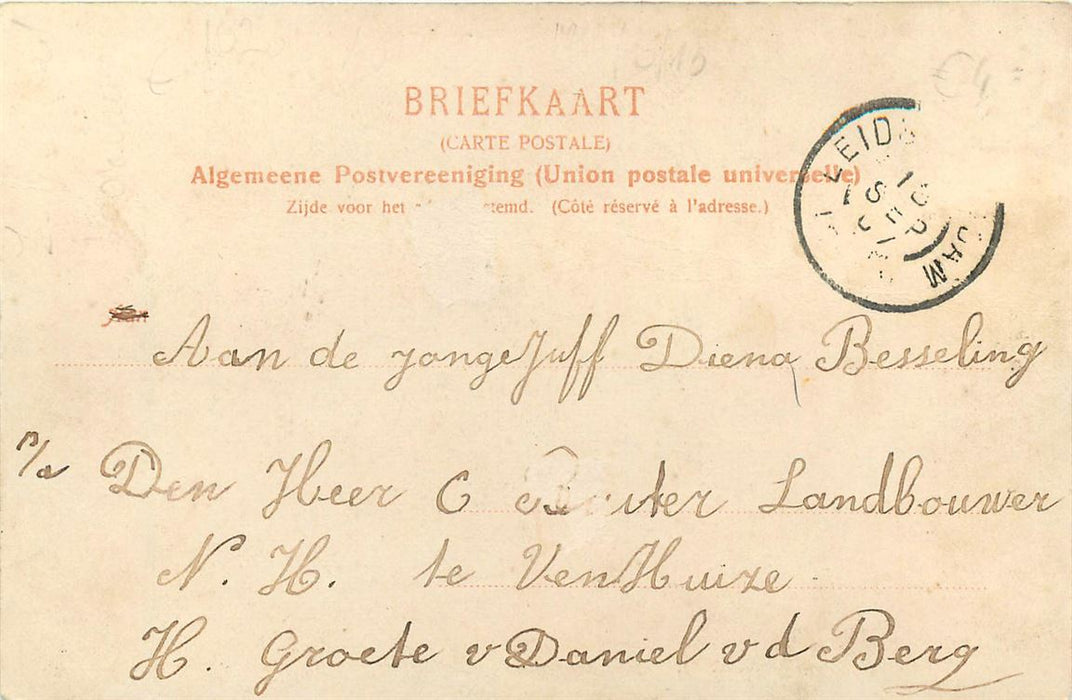 BRIEFKAART
(CARTE POSTALE)
Algemeene Postvereeniging (Union postale universelle)
Zijde voor het stemd. (Côté réservé à l'adresse.)
LEID DAM
10 SEP
Aan de jongeJuff Diena Besseling
p/a Den Heer C Landbouwer
N. H. te VenHuize
H. Groete v Daniel v d Berg